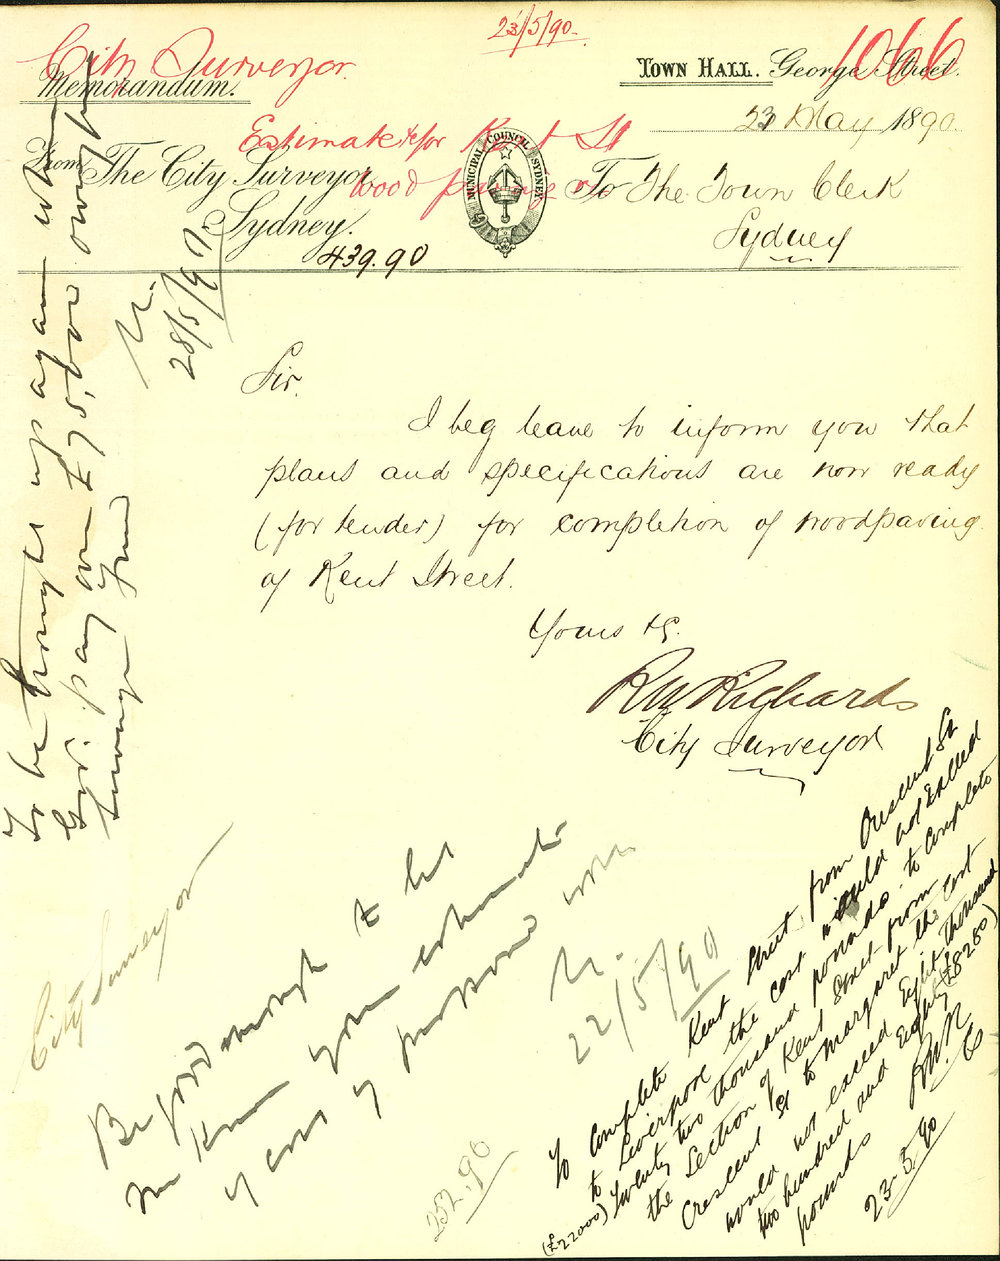 23/5/90.
1066
City Surveyor
Memorandum.
TOWN HALL. George Street.
23 May 1890.
Estimate for Kent St
wood paving
From The City Surveyor
Sydney.
MUNICIPAL COUNCIL SYDNEY
To The Town Clerk
Sydney
439.90
Sir.
I beg leave to inform you that
plans and specifications are now ready
(for tender) for completion of woodpaving
of Kent Street.
Yours &c.
R W Richards
City Surveyor
To be brought up again when
Govt. pay over £75,000 owing for
28/5/90.
City Surveyor
Be good enough to let
me know your estimate
of cost of proposed work
22/5/90
252.90
To Complete Kent Street from Crescent St
to Liverpool the cost would not Exceed
(£22000) Twenty two thousand pounds. to Complete
the Section of Kent Street from
Crescent St to Margaret the cost
would not exceed Eight thousand
two hundred and Eighty (£8280)
pounds
RWR
CS
23-5-90